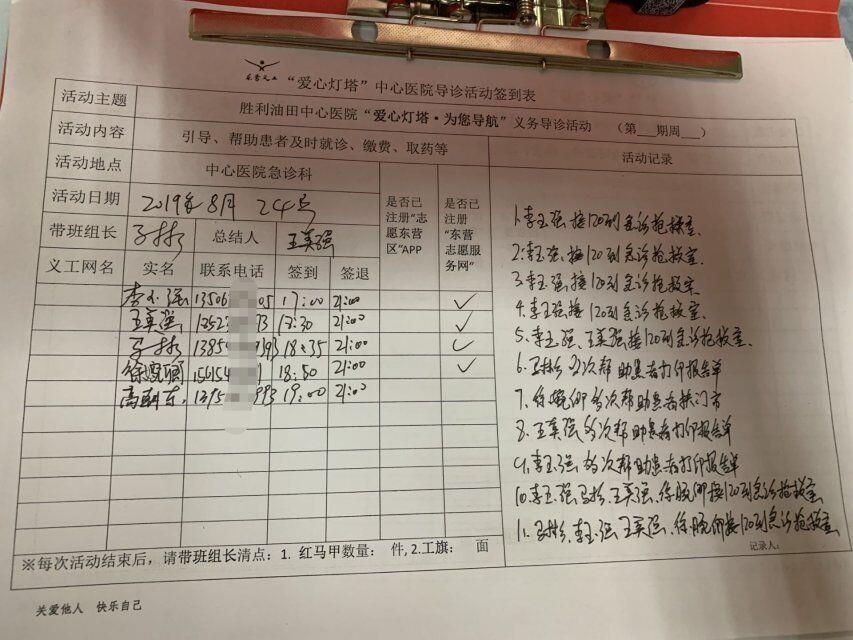 东营义工 "爱心灯塔"中心医院导诊活动签到表
活动主题 胜利油田中心医院"爱心灯塔·为您导航"义务导诊活动 (第 期周 )
活动内容 引导、帮助患者及时就诊、缴费、取药等
活动地点 中心医院急诊科
活动日期 2019年8月24号
带班组长 总结人 王美强
是否已注册"志愿东营区"APP
是否已注册"东营志愿服务网"
义工网名 实名 联系电话 签到 签退
李玉强 13506 05 17:00 21:00 ✓
王美强 1352 93 17:30 21:00 ✓
1385 393 18:35 21:00 ✓
徐婉卿 15454 1 18:50 21:00 ✓
1395 993 19:00 21:00
活动记录
1.李玉强接120到急诊抢救室.
2.李玉强接120到急诊抢救室.
3.李玉强接120到急诊抢救室.
4.李玉强接120到急诊抢救室.
5.李玉强、王美强接120到急诊抢救室.
6. 多次帮助患者打印报告单
7.徐婉卿多次帮助患者扶门帘
8.王美强多次帮助患者打印报告单
9.李玉强多次帮助患者打印报告单
10.李玉强 王美强、徐婉卿接120到急诊抢救室
11. 李玉强、王美强、徐婉卿接120到急诊抢救室
记录人:
※每次活动结束后,请带班组长清点:1. 红马甲数量: 件,2.工旗: 面
关爱他人 快乐自己